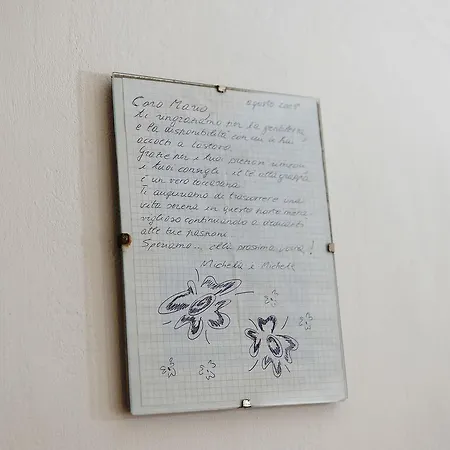 Caro Mario, agosto 2008
ti ringraziamo per la gentilezza
e la disponibilità con cui ci hai
accolti a Lustova.
Grazie per i tuoi preziosi
i tuoi consigli, il tè alla grappa
è un vero toccasana.
Ti auguriamo di trascorrere una
vita serena in questo posto mera-
viglioso continuando a
alle tue passioni.
Speriamo... alla prossima !
Michela e Michele